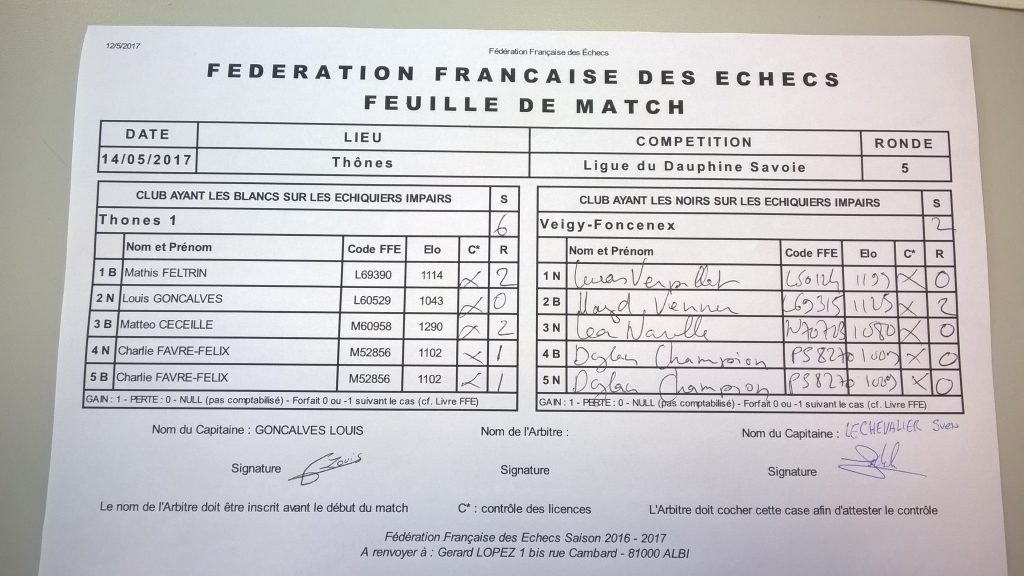 12/5/2017
Fédération Française des Échecs
FEDERATION FRANCAISE DES ECHECS
FEUILLE DE MATCH
DATE LIEU COMPETITION RONDE
14/05/2017 Thônes Ligue du Dauphine Savoie 5
CLUB AYANT LES BLANCS SUR LES ECHIQUIERS IMPAIRS S
Thones 1 6
Nom et Prénom Code FFE Elo C* R
1 B Mathis FELTRIN L69390 1114 X 2
2 N Louis GONCALVES L60529 1043 X 0
3 B Matteo CECEILLE M60958 1290 X 2
4 N Charlie FAVRE-FELIX M52856 1102 X 1
5 B Charlie FAVRE-FELIX M52856 1102 X 1
GAIN : 1 - PERTE : 0 - NULL (pas comptabilisé) - Forfait 0 ou -1 suivant le cas (cf. Livre FFE)
CLUB AYANT LES NOIRS SUR LES ECHIQUIERS IMPAIRS S
Veigy-Foncenex 2
Nom et Prénom Code FFE Elo C* R
1 N Lucas L50124 X 0
2 B L69315 1125 X 2
3 N Lea 1080 X 0
4 B Dylan Champion P58270 1009 X 0
5 N Dylan Champion P58270 1009 X 0
GAIN : 1 - PERTE : 0 - NULL (pas comptabilisé) - Forfait 0 ou -1 suivant le cas (cf. Livre FFE)
Nom du Capitaine : GONCALVES LOUIS Nom de l'Arbitre : Nom du Capitaine : LECHEVALIER Sven
Signature Louis Signature Signature
Le nom de l'Arbitre doit être inscrit avant le début du match C* : contrôle des licences L'Arbitre doit cocher cette case afin d'attester le contrôle
Fédération Française des Echecs Saison 2016 - 2017
A renvoyer à : Gerard LOPEZ 1 bis rue Cambard - 81000 ALBI